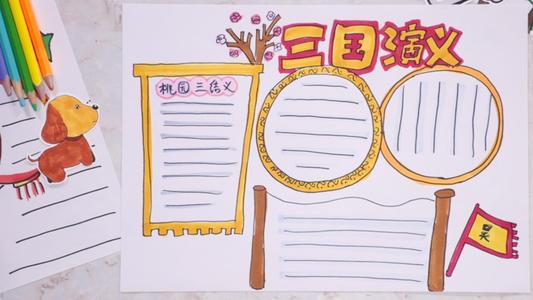 三国演义
桃园三结义
吴